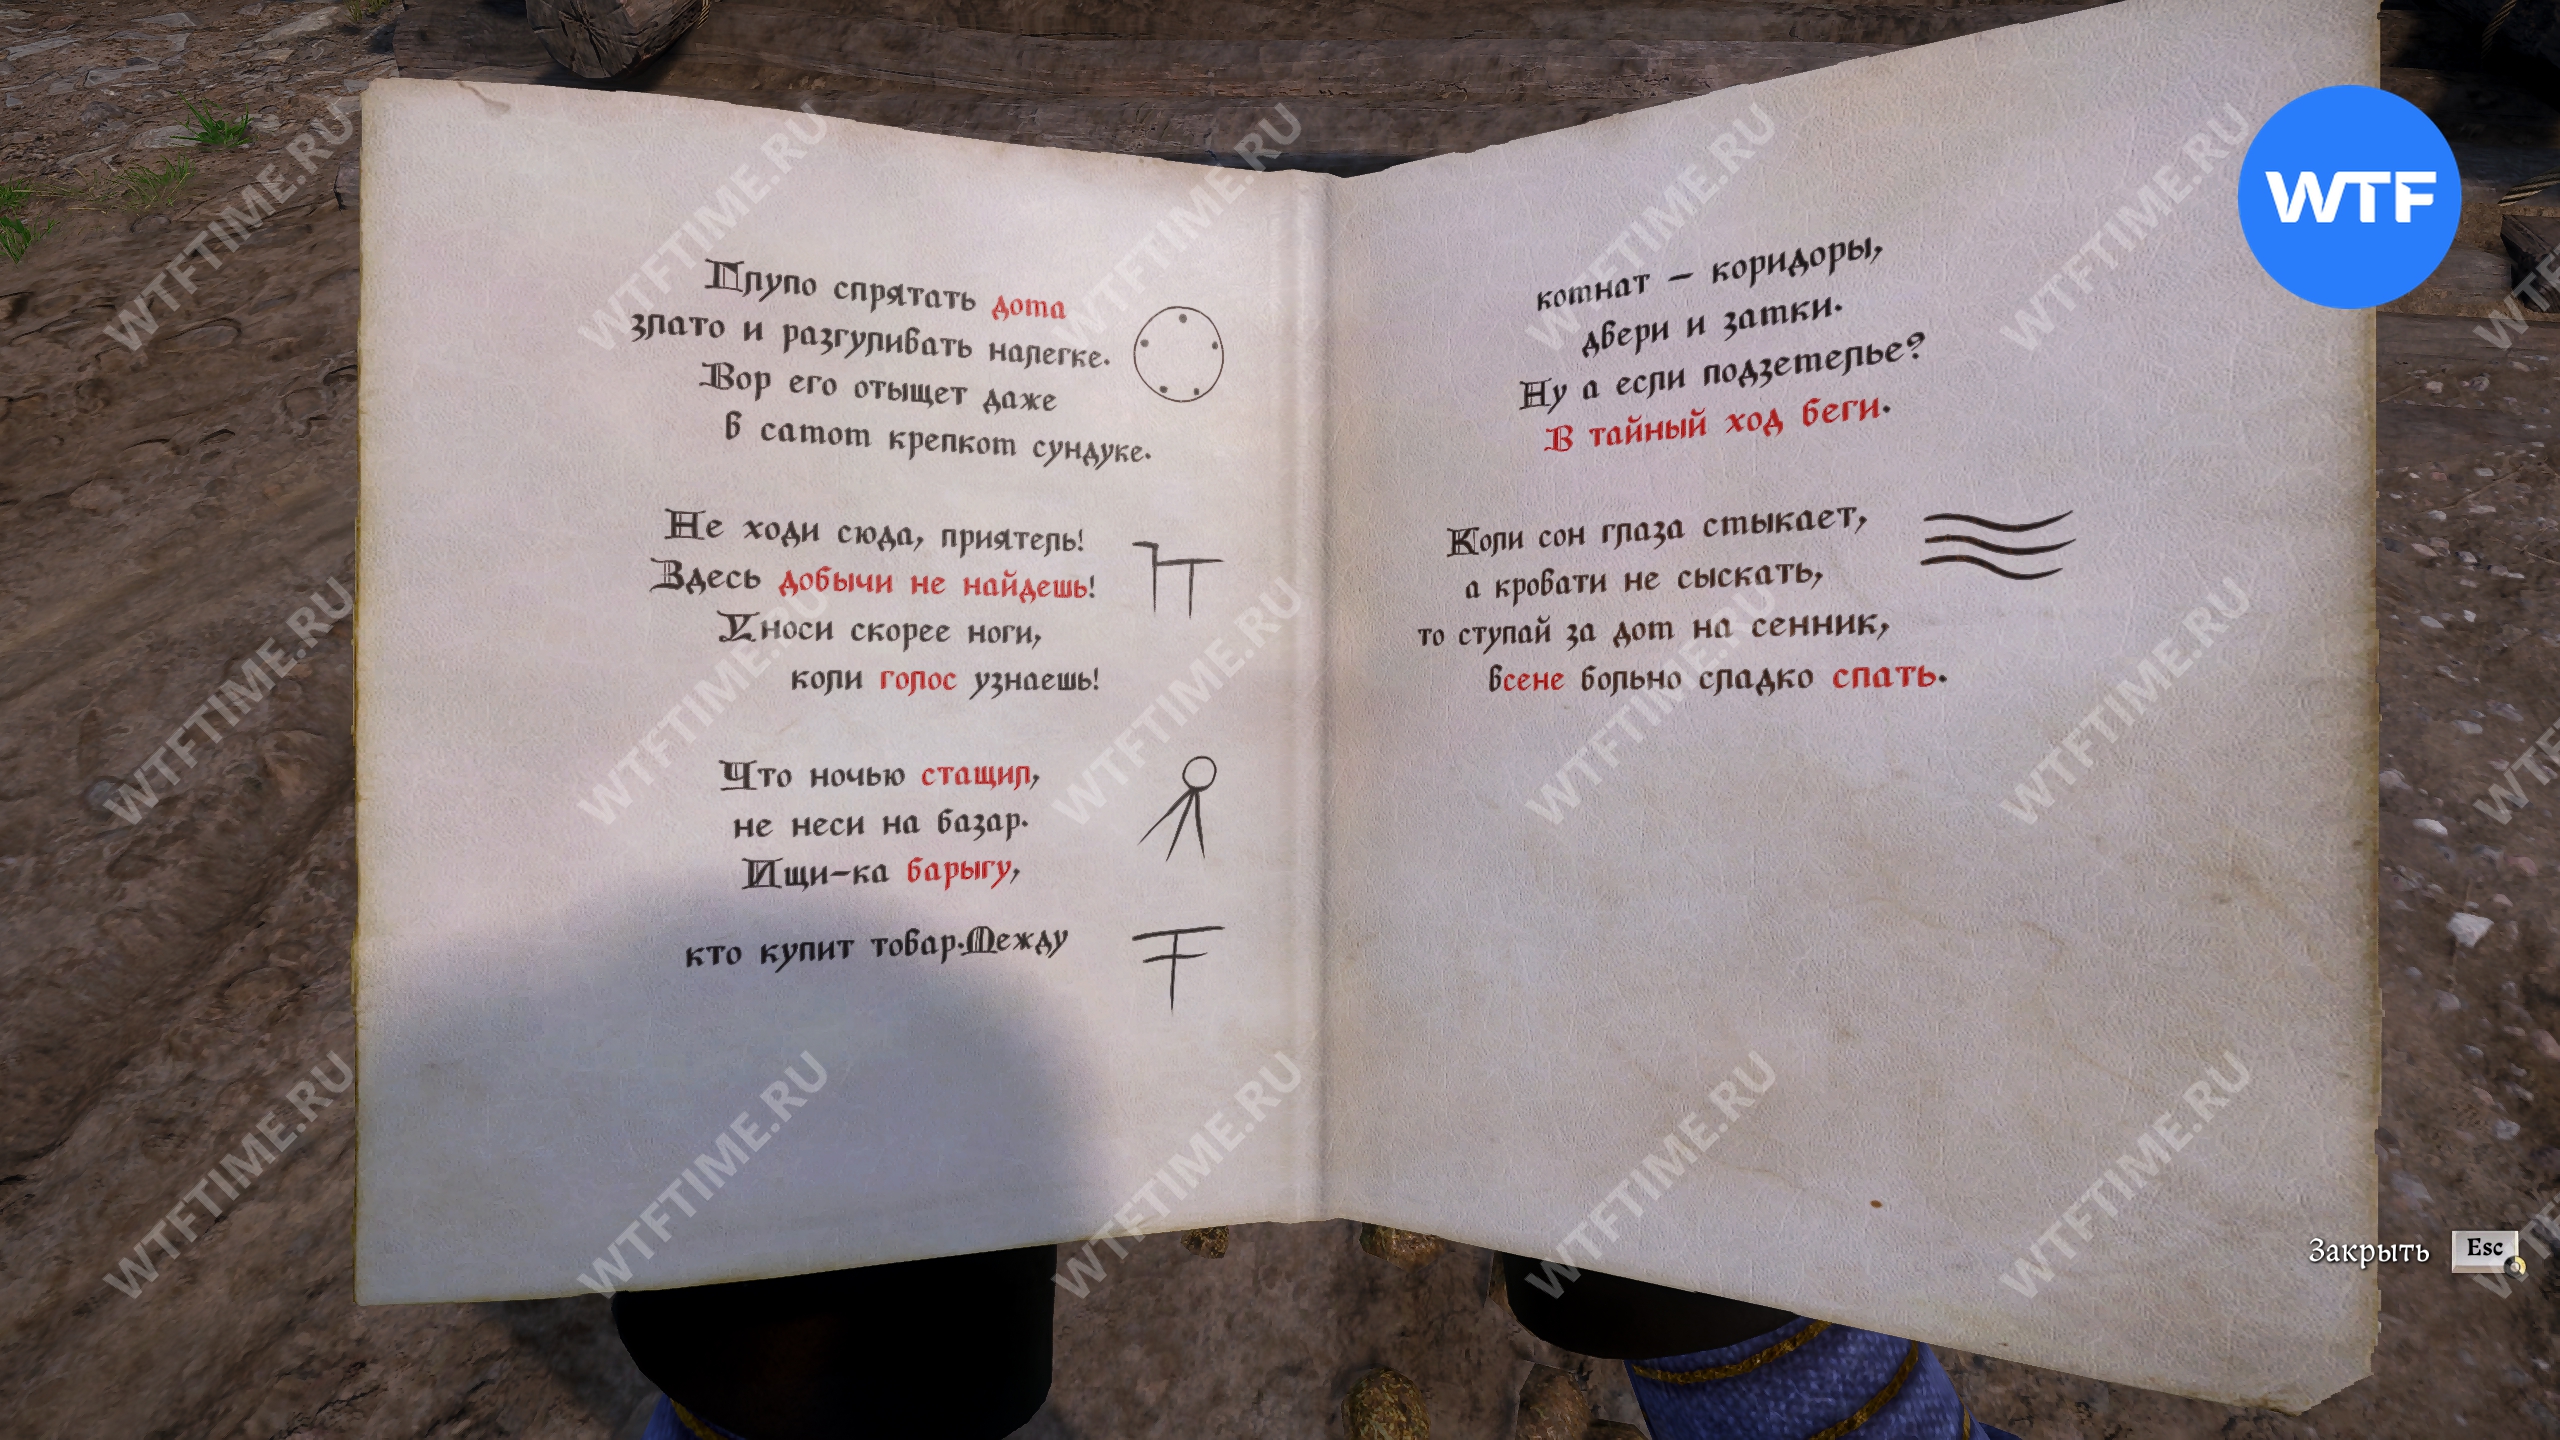 Глупо спрятать дома
злато и разгуливать налегке.
Вор его отыщет даже
в самом крепком сундуке.
Не ходи сюда, приятель!
Здесь добычи не найдешь!
Уноси скорее ноги,
коли голос узнаешь!
Что ночью стащил,
не неси на базар.
Ищи-ка барыгу,
кто купит товар.Между
комнат – коридоры,
двери и замки.
Ну а если подземелье?
В тайный ход беги.
Коли сон глаза смыкает,
а кровати не сыскать,
то ступай за дом на сенник,
всене больно сладко спать.
WTF
Закрыть Esc
WTFTIME.RU